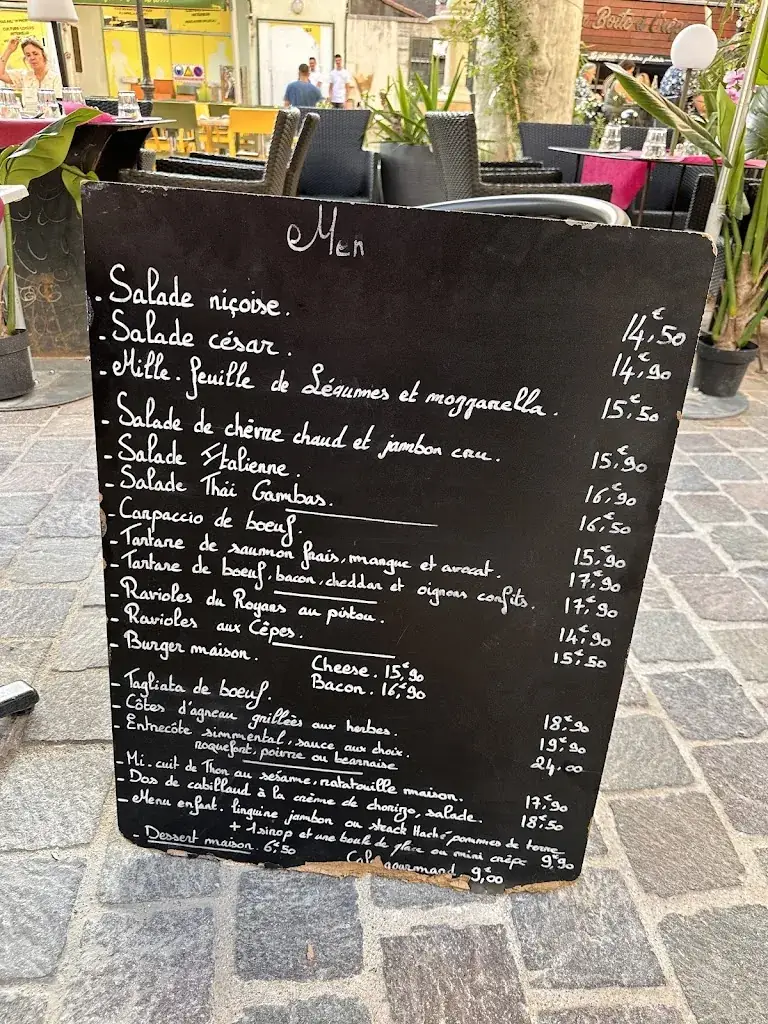 Men
- Salade niçoise. 14,€50
- Salade césar. 14,€90
- Mille-feuille de Légumes et mozzarella. 15,€50
- Salade de chèvre chaud et jambon cru. 15,€90
- Salade Italienne. 16,€90
- Salade Thaï Gambas. 16,€50
- Carpaccio de boeuf. 15,€90
- Tartare de saumon frais, mangue et avocat. 17,€90
- Tartare de boeuf, bacon, cheddar et oignons confits. 17,€90
- Ravioles du Royans au pistou. 14,€90
- Ravioles aux Cêpes. 15,€50
- Burger maison. Cheese. 15,€90
Bacon. 16,€90
- Tagliata de boeuf. 18,€90
- Côtes d'agneau grillées aux herbes. 19,€90
- Entrecôte simmental, sauce aux choix. 24,€00
roquefort, poivre ou bearnaise
- Mi-cuit de Thon au sésame, ratatouille maison. 17,€90
- Dos de cabillaud à la crème de chorizo, salade. 18,€50
- Menu enfant. linguine jambon ou steack Haché pommes de terre
+ 1 sirop et une boule de glace ou mini crêpe 9,€90
- Dessert maison. 6,€50
Café gourmand 9,€00